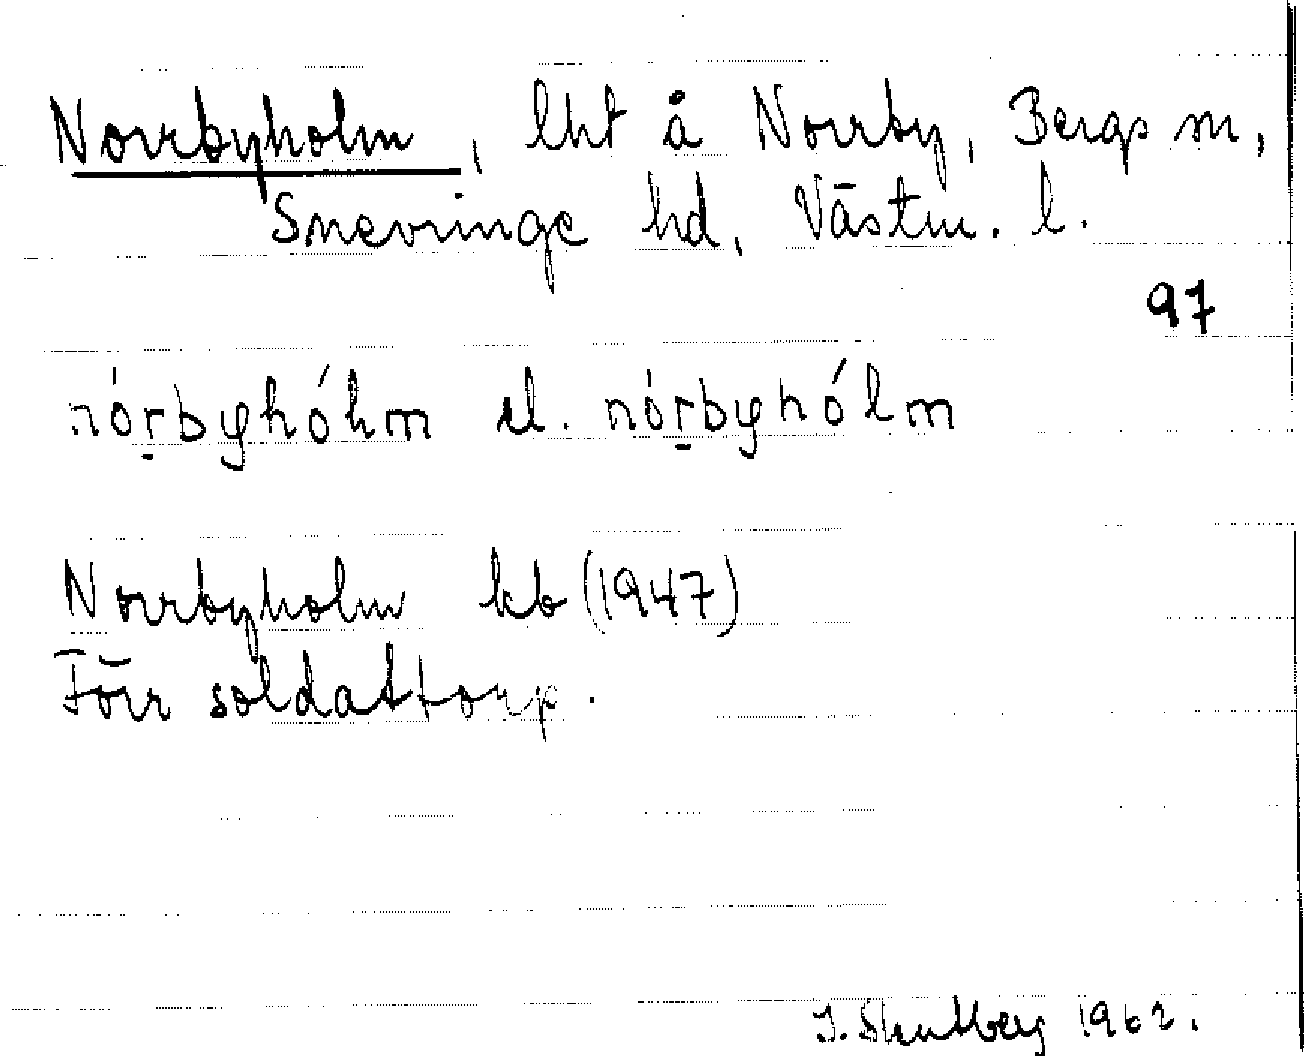 Norrbyholm, lht å Norrby, Bergs sn,
Snevringe hd, Västm. l.
97
nó̱rbyhóhm el. nó̱rbyhólm
Norrbyholm kb (1947)
Förr soldattorp.
1962.